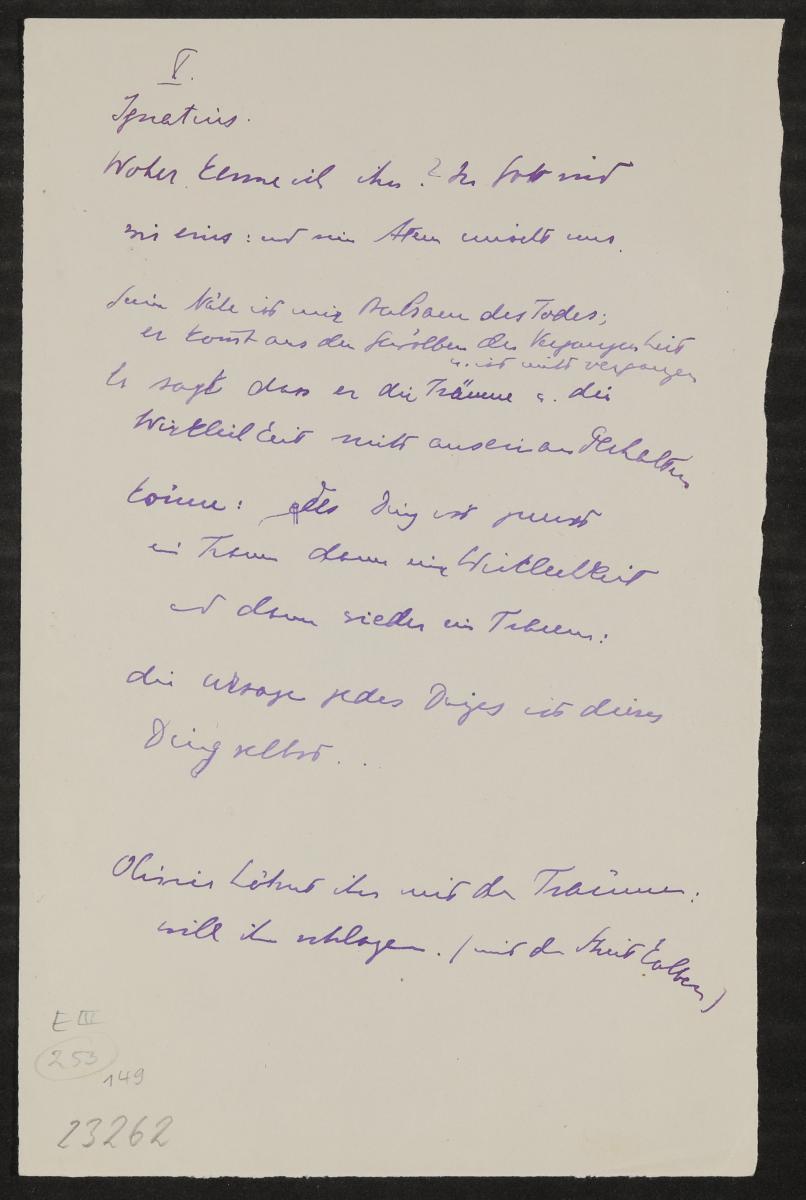 V.
Ignatius.
Woher kenne ich ihn? In Gott sind
wir eins: und sein Atem umweht uns.
Seine Nähe ist wie Balsam des Todes;
er kommt aus den Gewölben der Vergangenheit
u. ist nicht vergangen
Er sagt dass er die Träume u. die
Wirklichkeit nicht auseinanderhalten
könne: jedes Ding ist zuerst
ein Traum dann eine Wirklichkeit
und dann wieder ein Traum:
die Ursage jedes Dinges ist dieses
Ding selbst...
Olivier höhnt ihn mit den Träumen:
will ihn schlagen. (mit dem
E III
253
149
23262